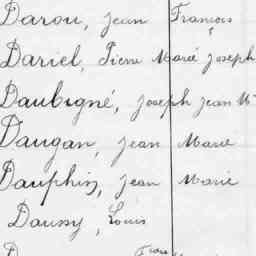 Darou, Jean François
Dariel, Pierre Marie Joseph
Daubigné, Joseph Jean M
Daugan, Jean Marie
Dauphin, Jean Marie
Daussy, Louis